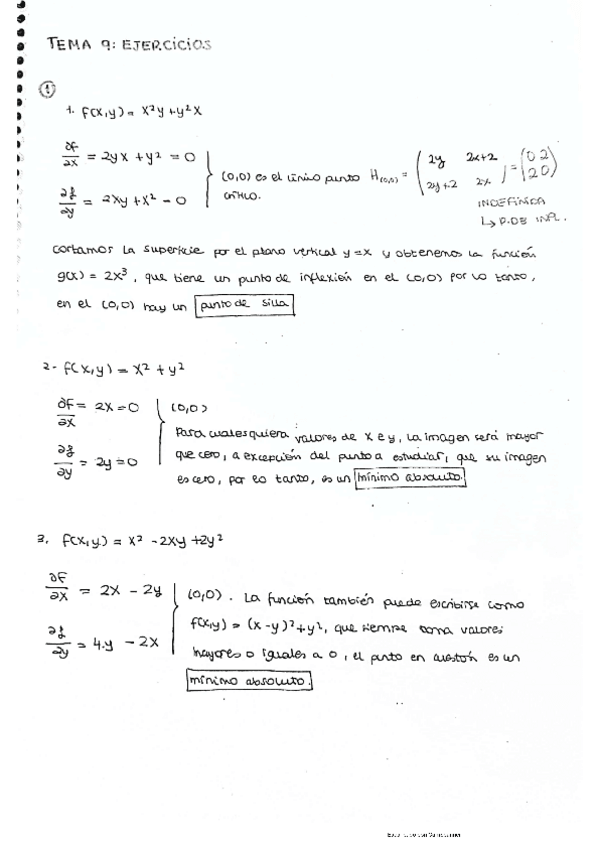 TEMA 9: EJERCICIOS
①
1. f(x,y) = x²y + y²x
∂f/∂x = 2yx + y² = 0
∂f/∂y = 2xy + x² = 0
(0,0) es el único punto crítico.
H(0,0) = (2y 2x+2 / 2y+2 2x) = (0 2 / 2 0)
INDEFINIDA
↳ P. DE INFL.
cortamos la superficie por el plano vertical y=x y obtenemos la función
g(x) = 2x³, que tiene un punto de inflexión en el (0,0) por lo tanto,
en el (0,0) hay un punto de silla
2- f(x,y) = x² + y²
∂f/∂x = 2x = 0
∂f/∂y = 2y = 0
(0,0)
Para cualesquiera valores de x e y, la imagen será mayor
que cero, a excepción del punto a estudiar, que su imagen
es cero, por lo tanto, es un mínimo absoluto.
3. f(x,y) = x² - 2xy + 2y²
∂f/∂x = 2x - 2y
∂f/∂y = 4y - 2x
(0,0). La función también puede escribirse como
f(x,y) = (x-y)² + y², que siempre toma valores
mayores o iguales a 0, el punto en cuestón es un
mínimo absoluto.